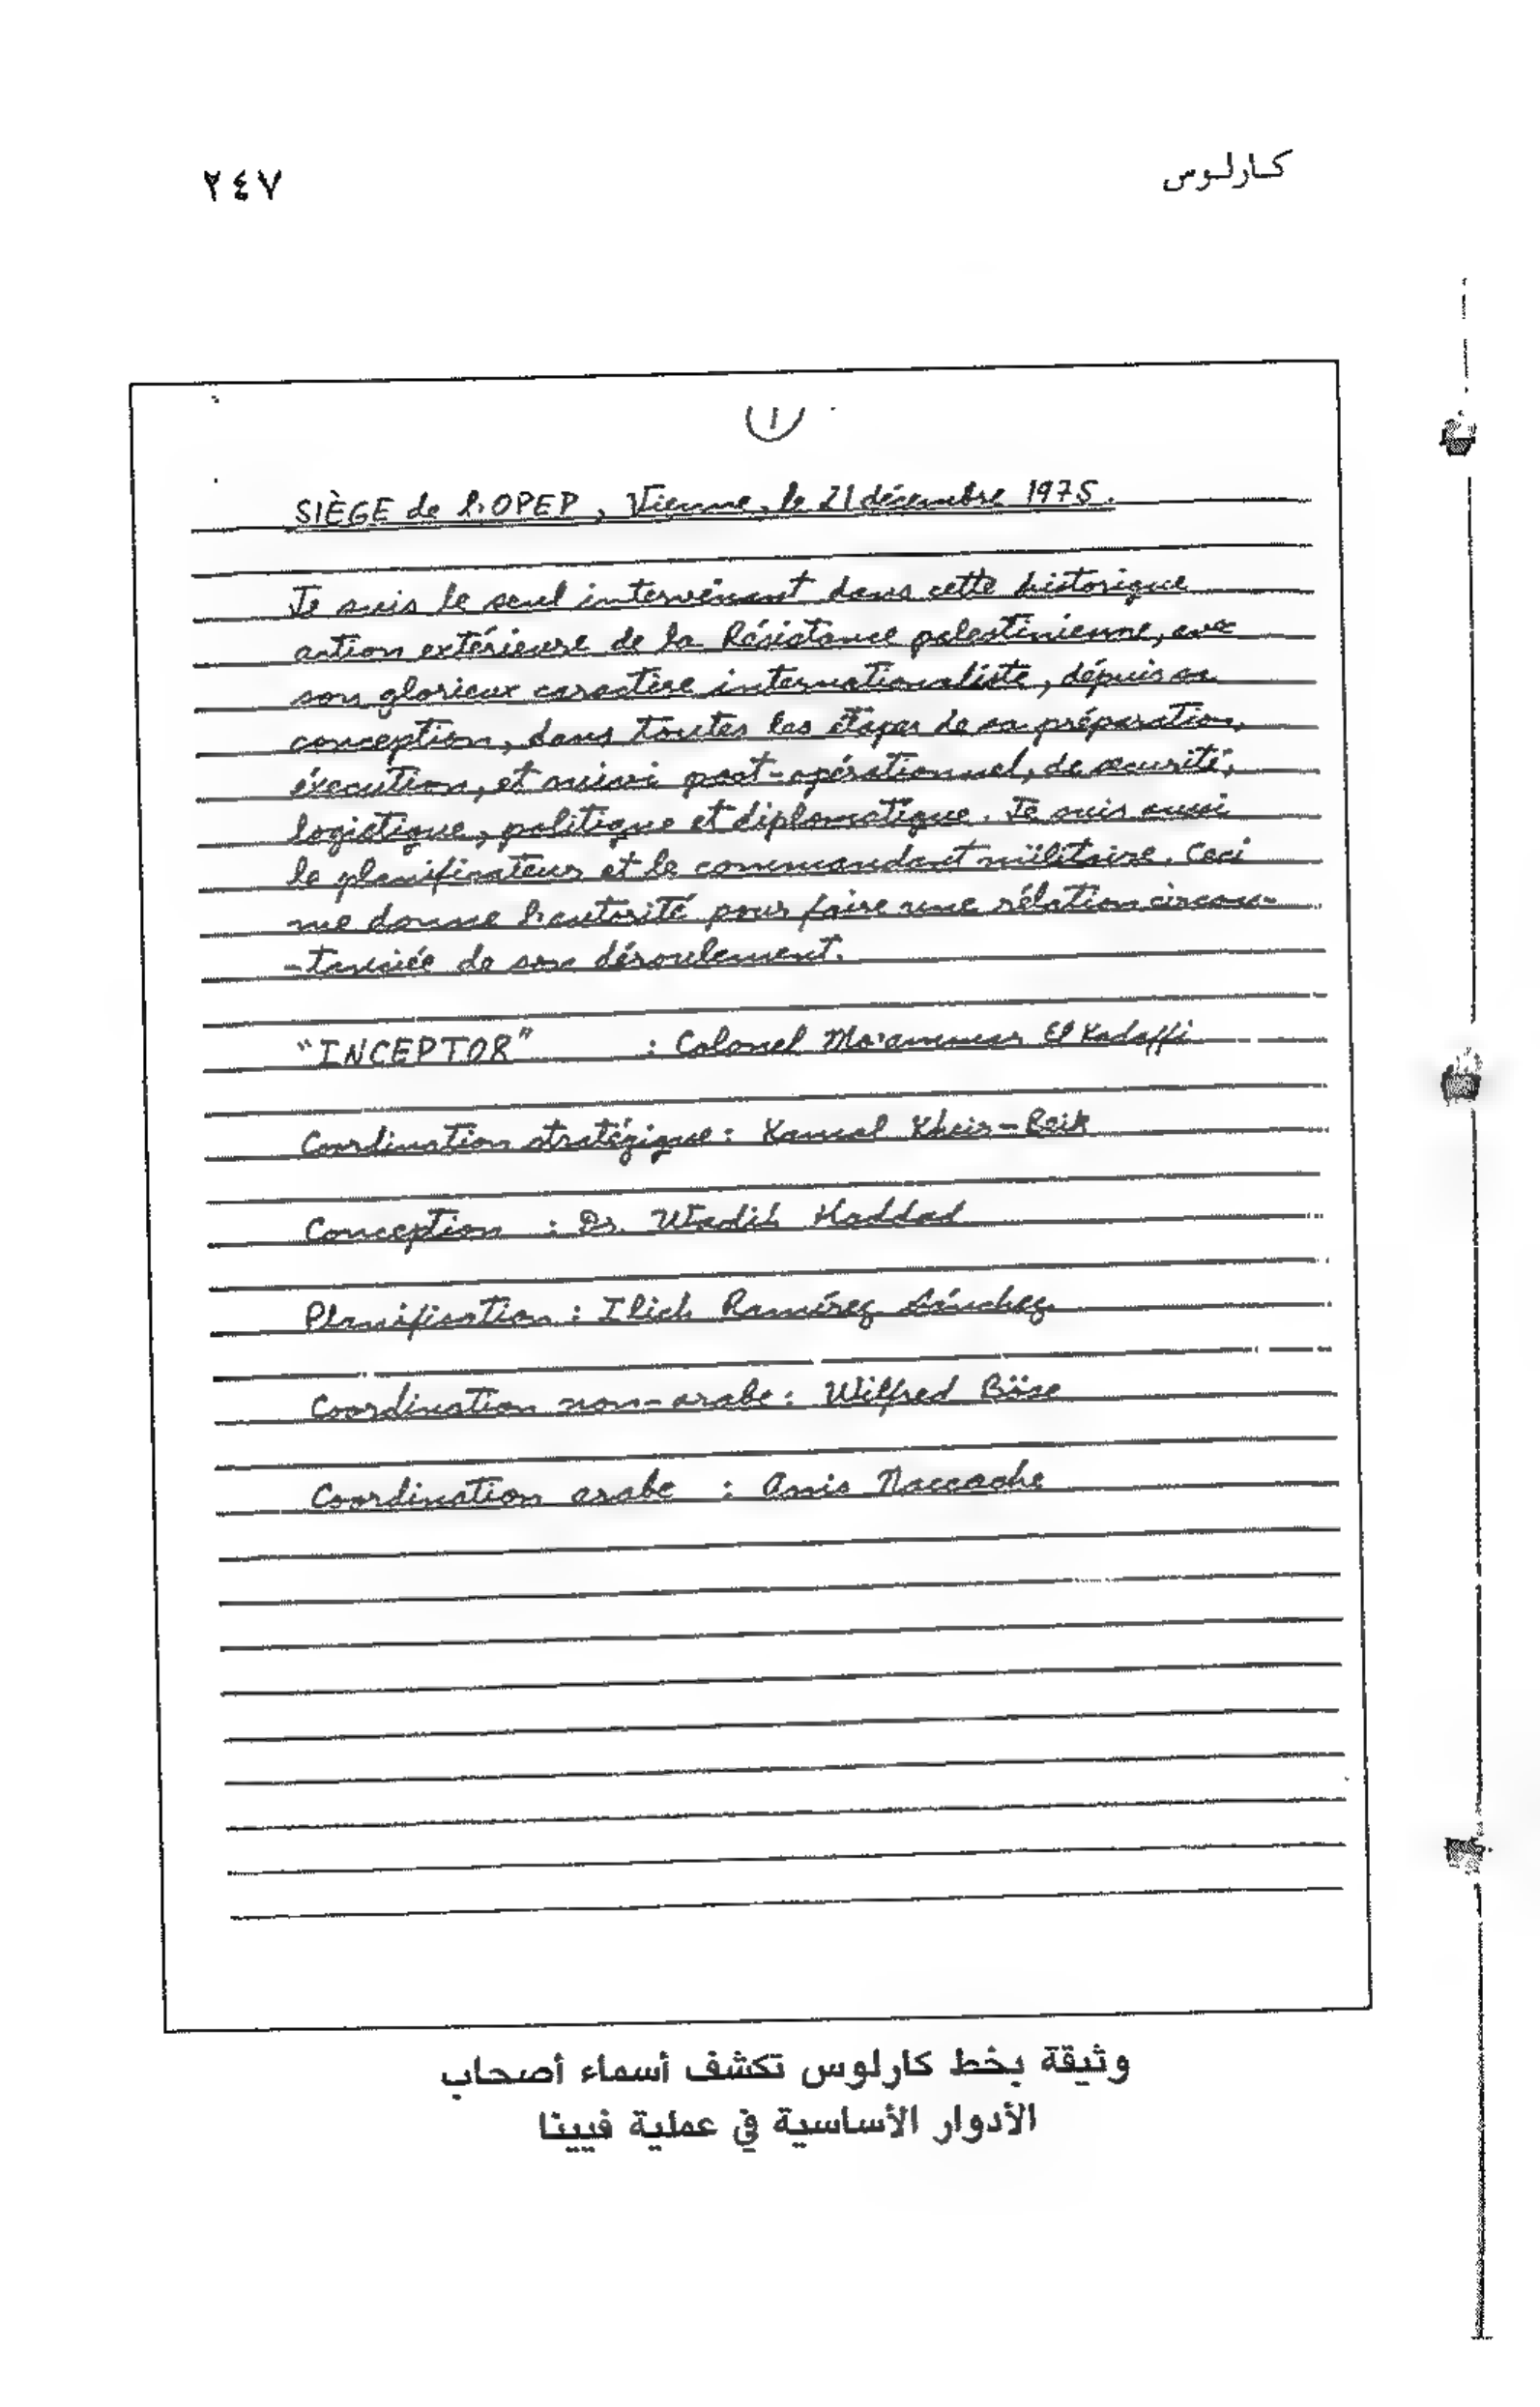 كارلوس
٢٤٧
1
SIÈGE de l'OPEP, Vienne, le 21 décembre 1975.
Je suis le seul intervénant dans cette historique
action extérieure de la Résistance palestinienne, avec
son glorieux caractère internationaliste, dépuis sa
conception, dans toutes les étapes de sa préparation,
éxecution, et suivi post-opérationnel, de securité,
logistique, politique et diplomatique. Je suis aussi
le planificateur et le commandant militaire. Ceci
me donne l'autorité pour faire une rélation circons-
-tanciée de son déroulement.
"INCEPTOR" : Colonel Mo'ammar El Kadaffi
Coordination stratégique : Kamal Kheir-Beik
Conception : Dr. Wadih Haddad
Planification : Ilich Ramírez Sánchez
Coordination non-arabe : Wilfred Böse
Coordination arabe : Anis Naccache
وثيقة بخط كارلوس تكشف أسماء أصحاب
الأدوار الأساسية في عملية فيينا